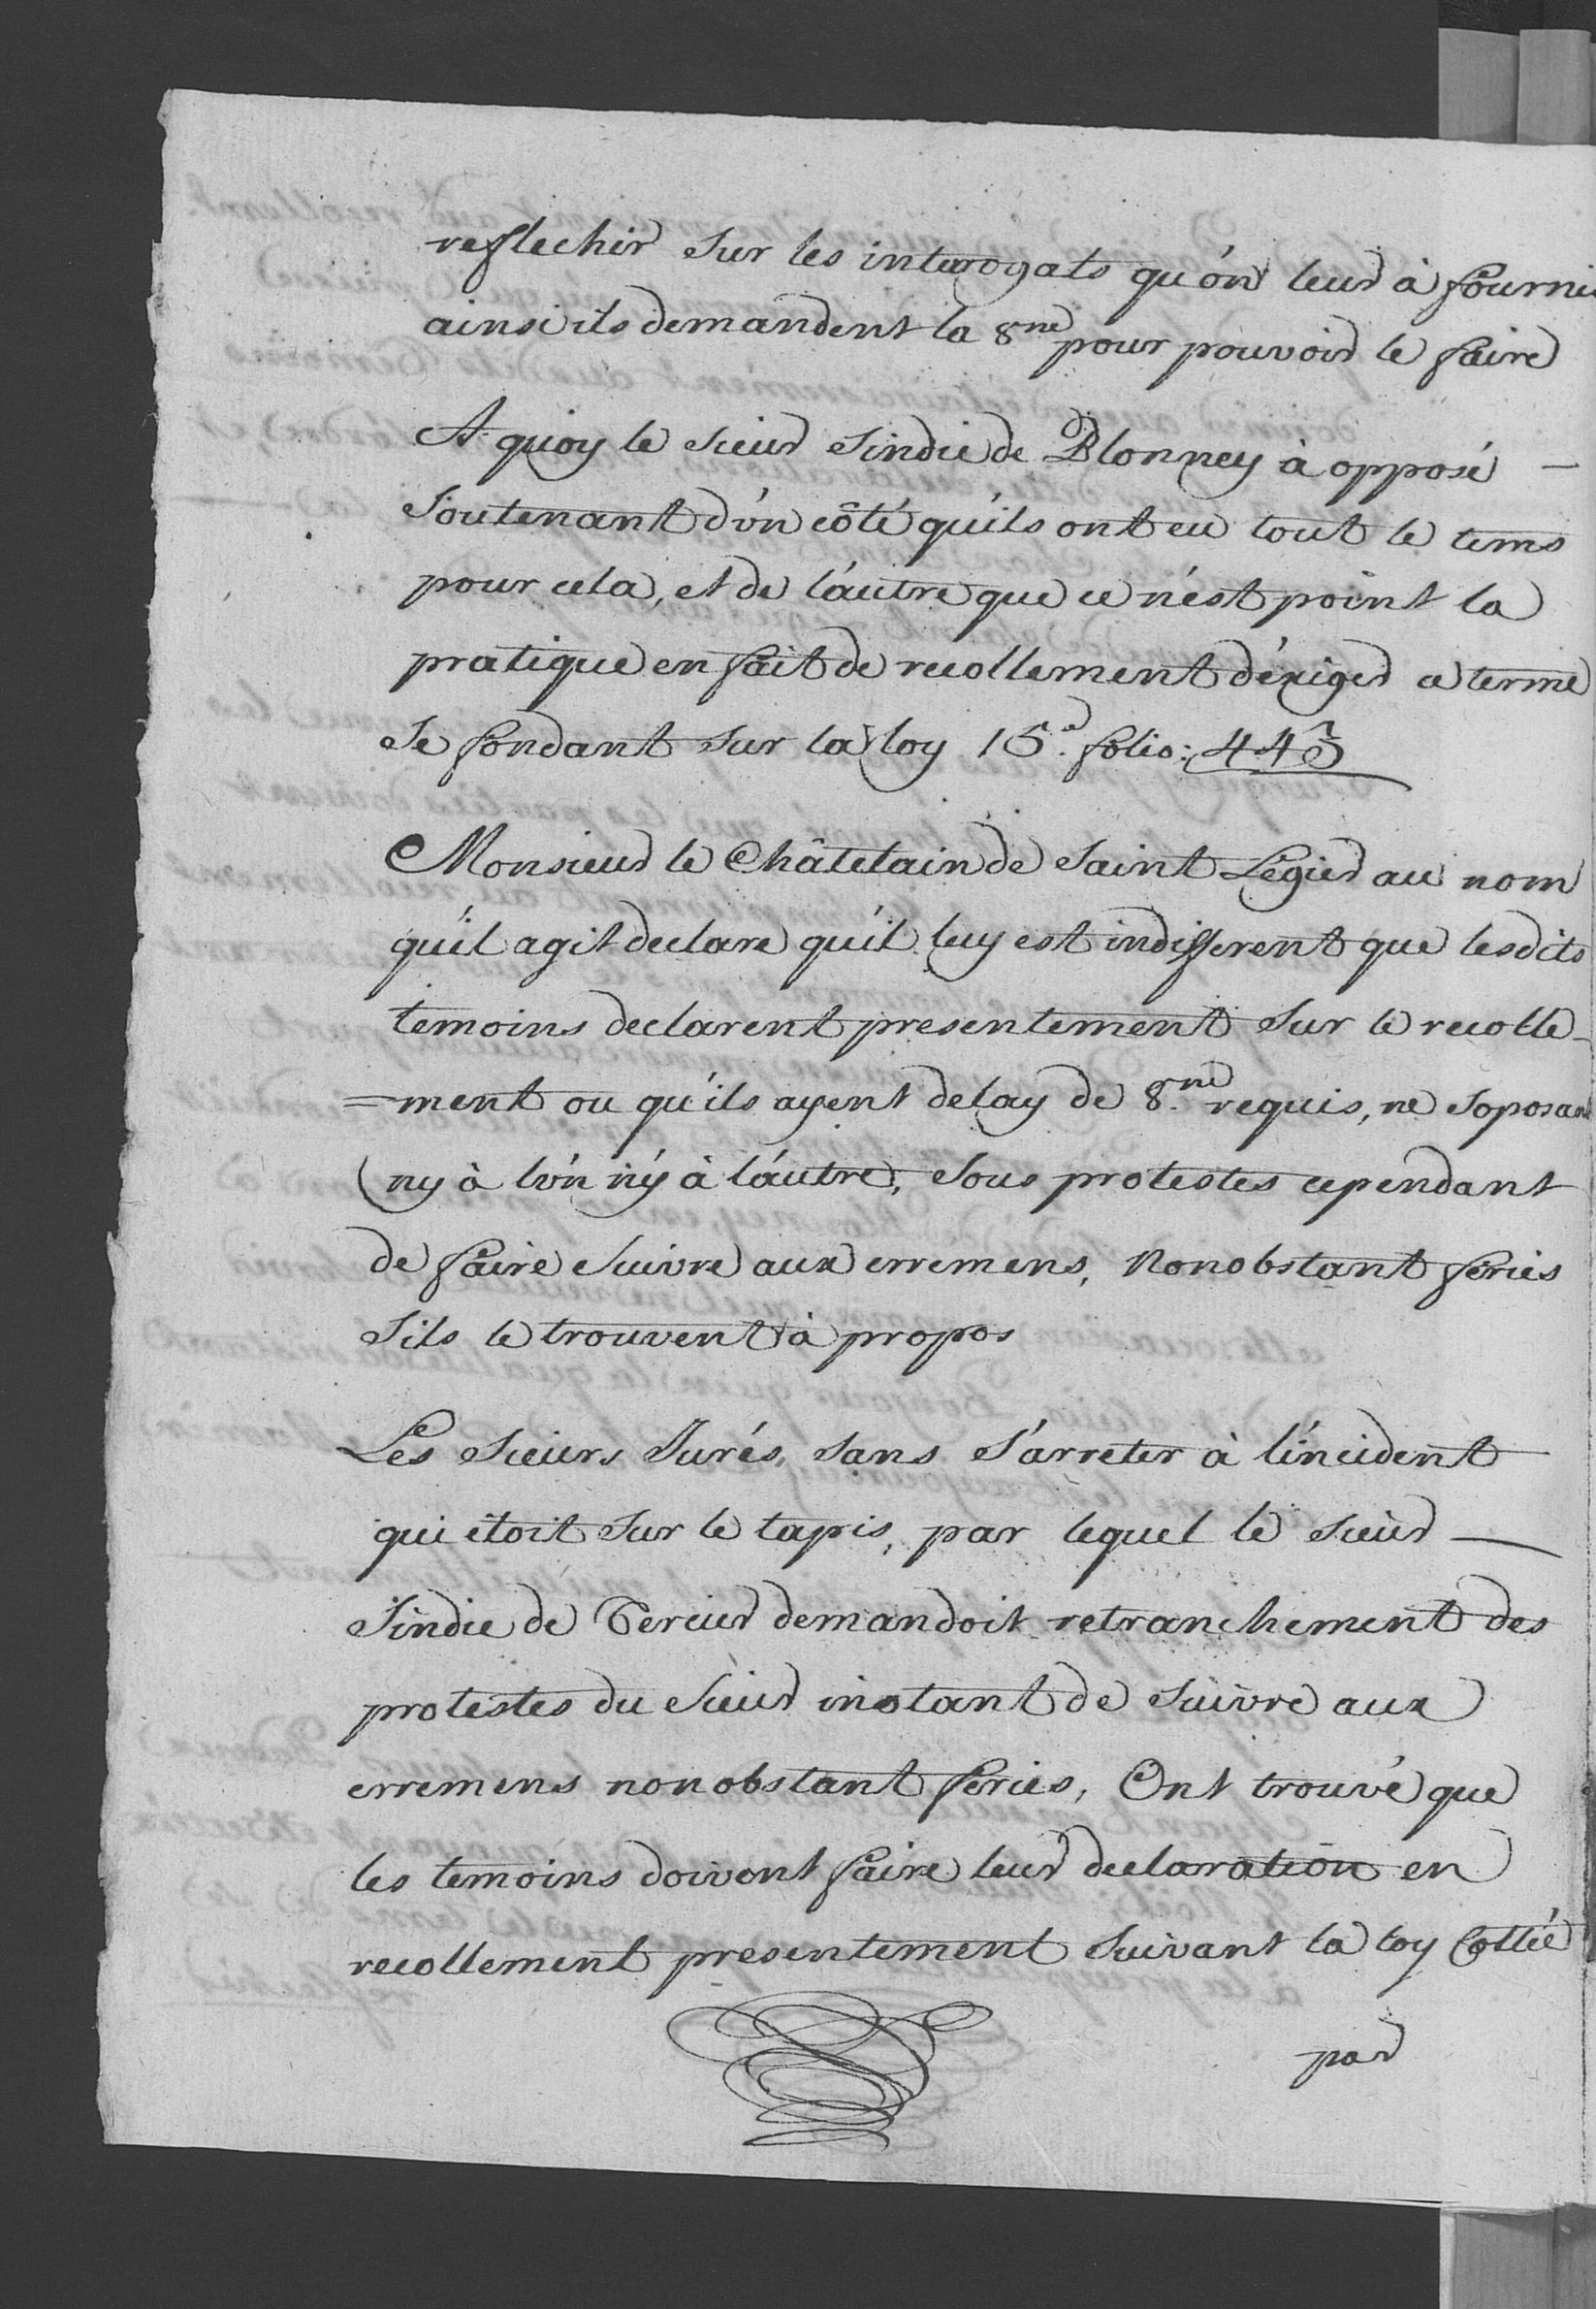 reflechir sur les interogats qu'ón leur à fournis
ainsi ils demandent la 8.ne pour pouvoir le faire
A quoy le sieur sindic de Blonney à opposé —
soutenant d'ún côté qu'ils ont eu tout le tems
pour cela, et de l'áutre que ce n'ést point la
pratique en fait de recollement d'éxiger ce terme
se fondant sur la loy 15.e folio: 443
Monsieur le Châtelain de Saint Légier au nom
qu'il agit declare qu'il luy est indifferent que lesdits
temoins declarent presentement sur le recolle-
=ment ou qu'ils ayent delay de 8.ne requis, ne s'oposant
ny à l'ún ny à l'áutre, sous protestes cependant
de faire suivre aux erremens, nonobstant feries
s'ils le trouvent à propos
Les sieurs Jurés, sans s'arreter à l'íncident
qui étoit sur le tapis, par lequel le sieur —
sindic de Tercier demandoit retranchement des
protestes du sieur instant de suivre aux
erremens nonobstant feries, Ont trouvé que
les temoins doivent faire leur declaration en
recollement presentement suivant la loy Cottée
par